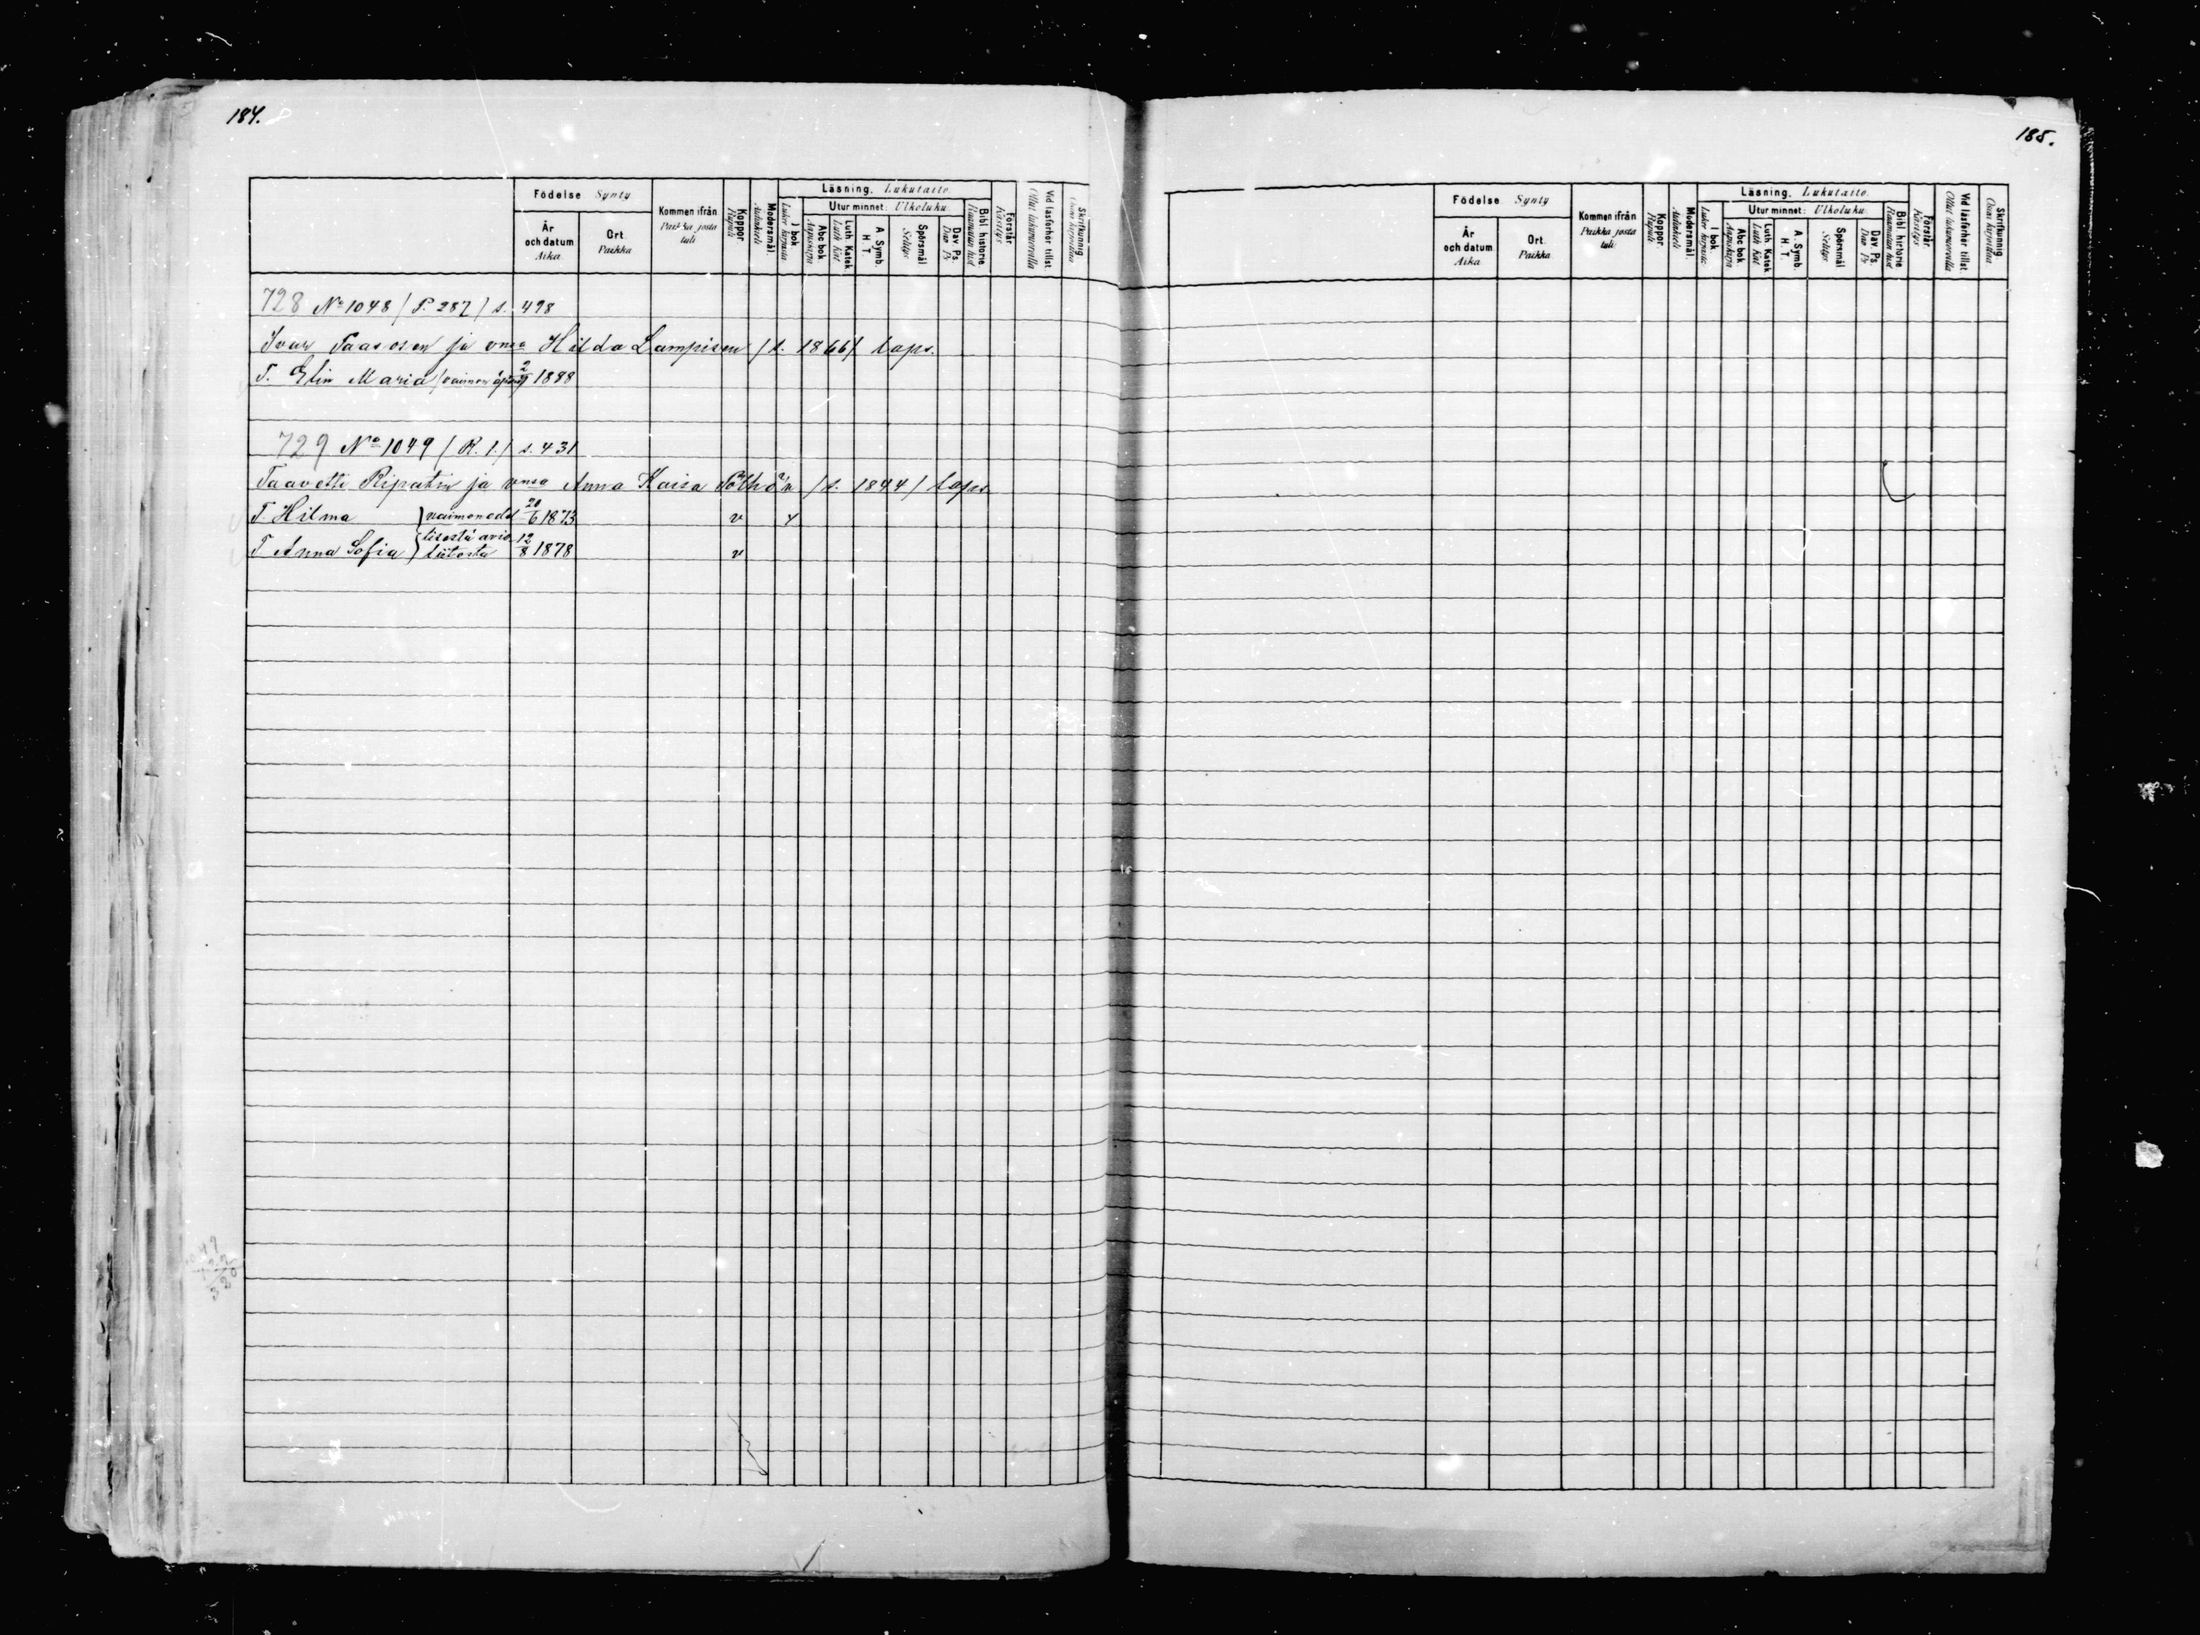 184.
185.
Födelse Synty
Kommen ifrån Paikka josta tuli
Koppor Rupuli
Modersmål. Äidinkieli
Läsning. Lukutaito
I bok Lukee kirjasta
Utur minnet: Ulkoluku
Abc bok Aapiskirja
Luth Katek Luth Kat
A Symb. H T.
Spörsmål Selitys
Dav. Ps. Dav Ps
Bibl historie Raamatun hist
Förstår Käsitys
Vid läsförhör tillst. Ollut lukumereilla
Skrifkunnig Osaa kirjoittaa
År och datum Aika
Ort. Paikka
728 No 1048 / P. 287 / s. 498
Ivar Paasosen ja vmsa Hilda Lampisen / s. 1866 / laps.
T. Elin Maria / vaimon 2 1888
729 No 1049 / R. 1. / s. 431
Taavetti Ripatin ja vmsa Anna Kaisa Pölhö'n / s. 1844 / laps.
T. Hilma } vaimon edel 20/6 1873 v y
tisestä avio
T Anna Sofia } liitosta 12/8 1878 v
Födelse Synty
Kommen ifrån Paikka josta tuli
Koppor Rupuli
Modersmål Äidinkieli
Läsning. Lukutaito.
I bok. Lukee kirjasta
Utur minnet: Ulkoluku
Abc bok Aapiskirja
Luth Katek Luth Kat
A Symb. H T.
Spörsmål Selitys
Dav. Ps. Dav Ps
Bibl hirtorie Raamatun hist
Förstår Käsitys
Vid läsförhör tillst. Ollut lukumereilla
Skrifkunnig. Osaa kirjoittaa
År och datum Aika
Ort. Paikka